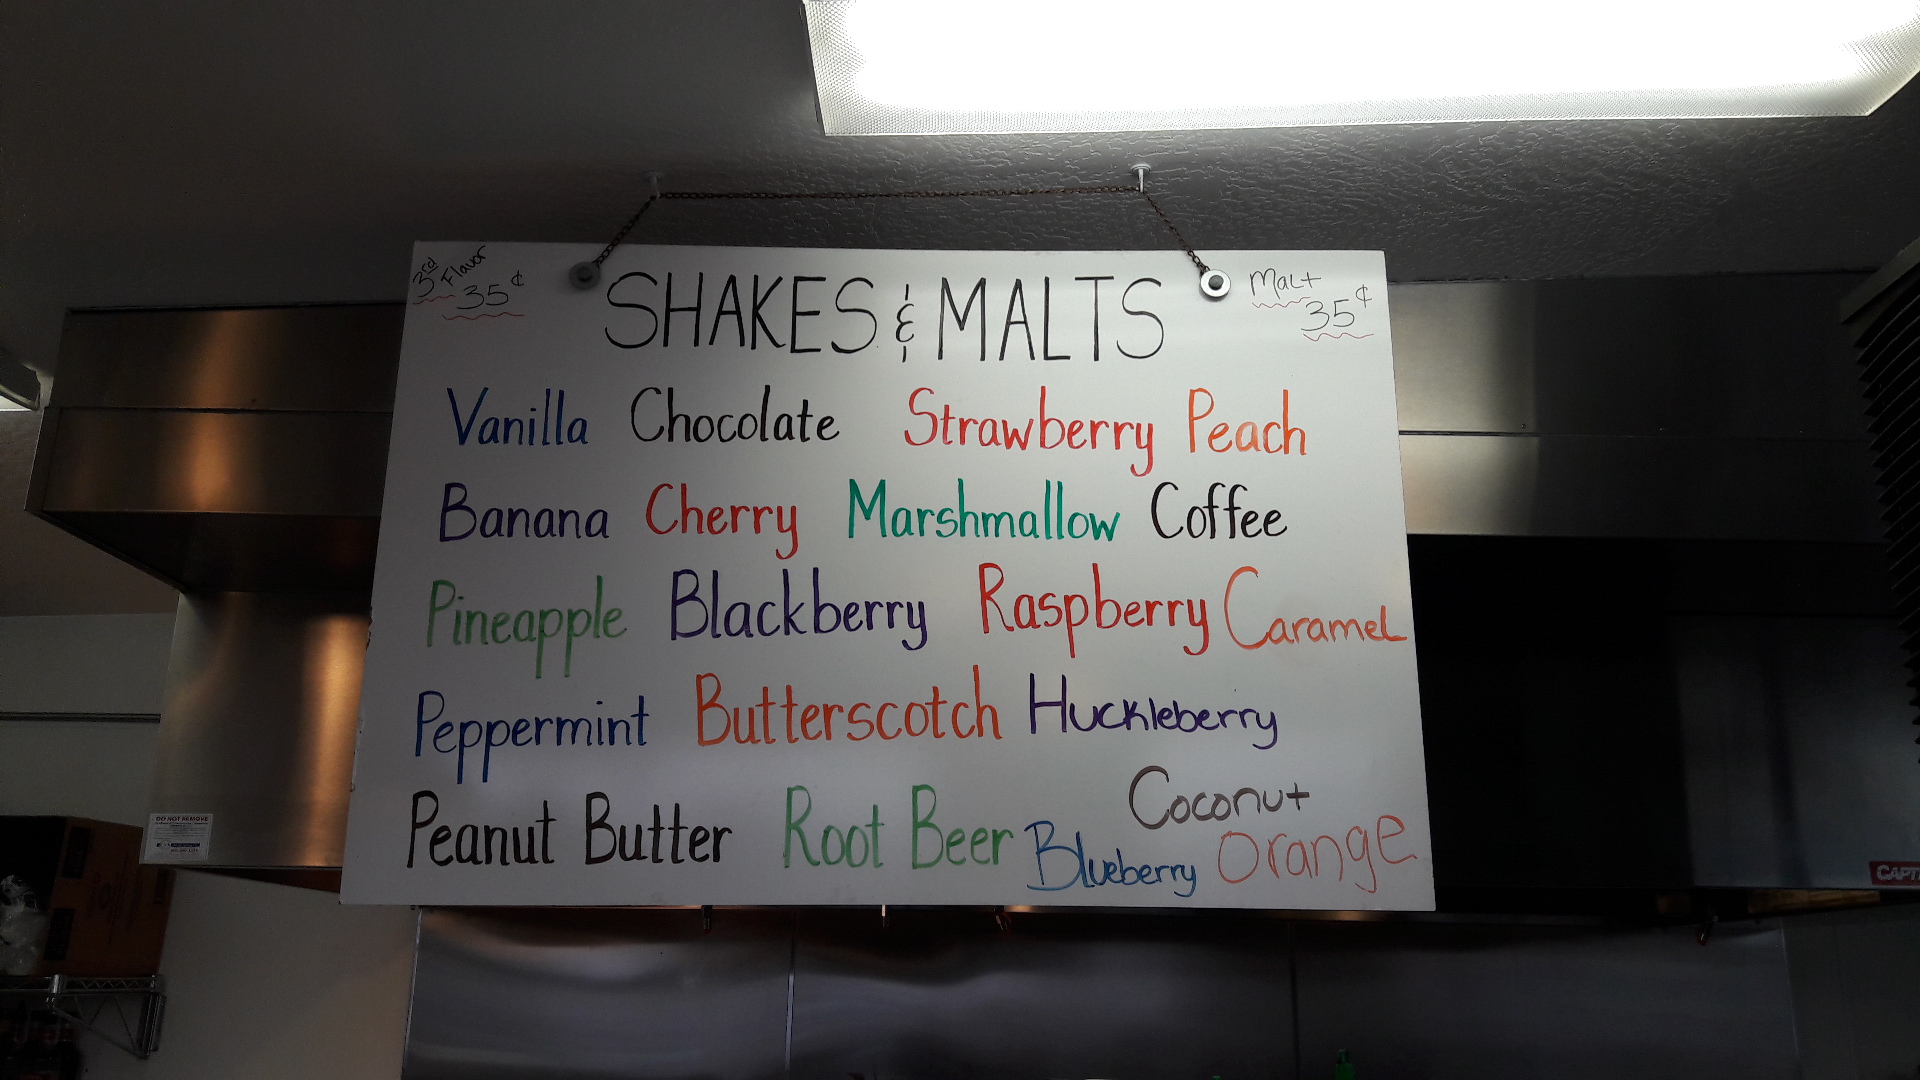 3rd Flavor
35¢
SHAKES & MALTS
Malt
35¢
Vanilla Chocolate Strawberry Peach
Banana Cherry Marshmallow Coffee
Pineapple Blackberry Raspberry Caramel
Peppermint Butterscotch Huckleberry
Peanut Butter Root Beer Blueberry Coconut Orange
DO NOT REMOVE